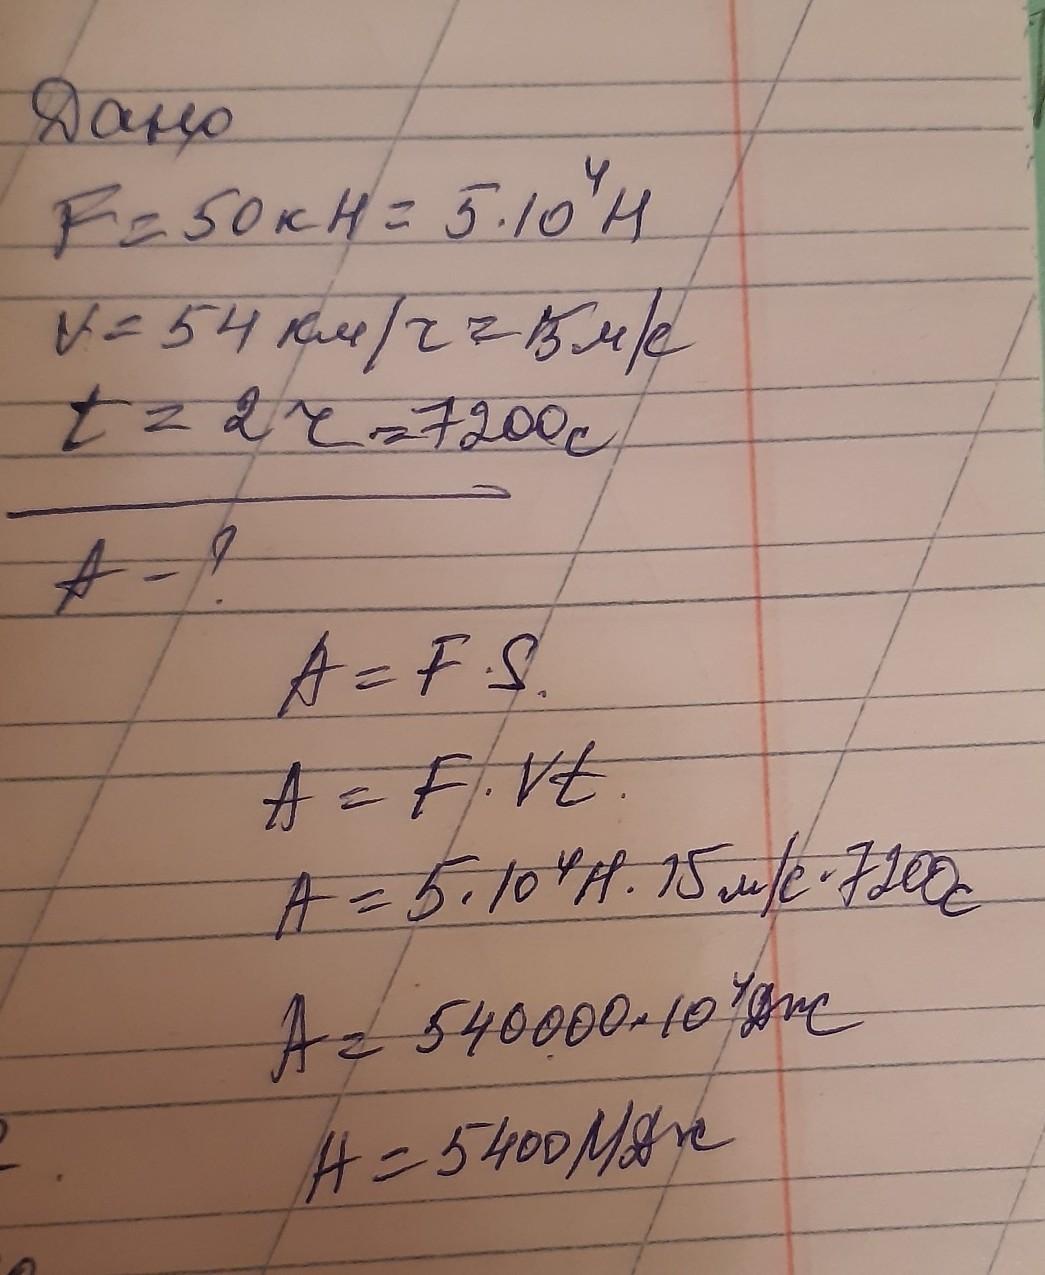 Дано
F = 50кН = 5·10⁴Н
v = 54 км/ч = 15м/с
t = 2 ч = 7200с
A - ?
A = F·S.
A = F·Vt.
A = 5·10⁴Н·15м/с·7200с
A = 540000·10⁴Дж
A = 5400МДж